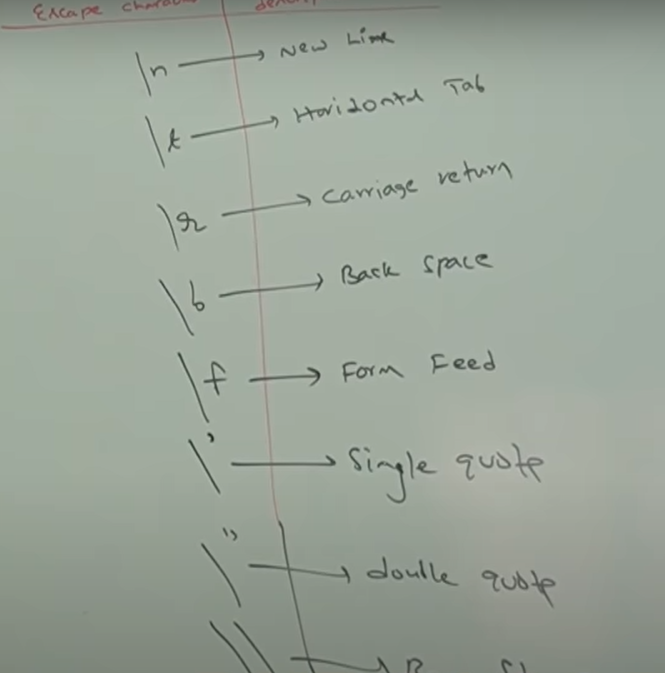 Escape
\n → New Line
\t → Horizontal Tab
\r → Carriage return
\b → Back space
\f → Form Feed
\' → Single quote
\" → double quote
\\ →